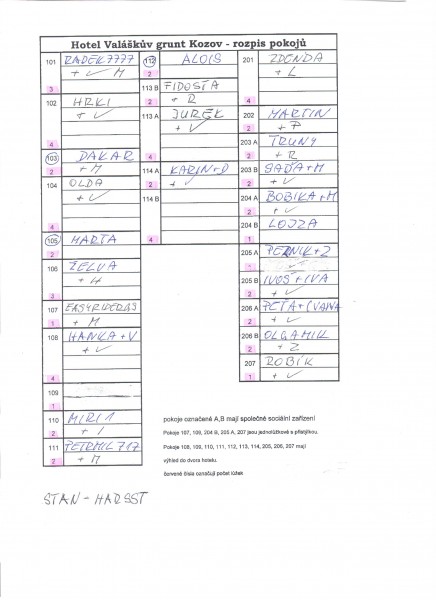 Hotel Valáškův grunt Kozov - rozpis pokojů
101 RADEK7777
+ ✓ M
3
102 HRKI
+ ✓
4
103 DAKAR
2 + M
104 OLDA
+ ✓
4
105 MARTA
2
106 ŽELVA
+ H
3
107 EASYRIDER
1 + M
108 HANKA + V
+ ✓
4
109
1
110 MIRI 1
2 + I
111 PETRMIL 717
2 + M
112 ALOIS
2
113 B FIDOSTA
2 + R
113 A JUREK
+ ✓
4
114 A KARIN + D
2 + ✓
114 B
4
201 ZDENDA
+ L
4
202 MARTIN
2 + P
203 A TRUNY
2 + R
203 B + M
2 + ✓
204 A BOBIKA + M
2 + ✓
204 B LOJZA
1
205 A PERNIK + Z
1 ✓
205 B IVOŠ + IVA
2 + ✓
206 A PEŤA + IVANA
2 + ✓
206 B OLGAMILL
2 + Z
207 ROBÍK
1 + ✓
pokoje označené A,B mají společné sociální zařízení
Pokoje 107, 109, 204 B, 205 A, 207 jsou jednolůžkové s přistýlkou.
Pokoje 108, 109, 110, 111, 112, 113, 114, 205, 206, 207 mají
výhled do dvora hotelu.
červené čísla označují počet lůžek
STAN - HARSST